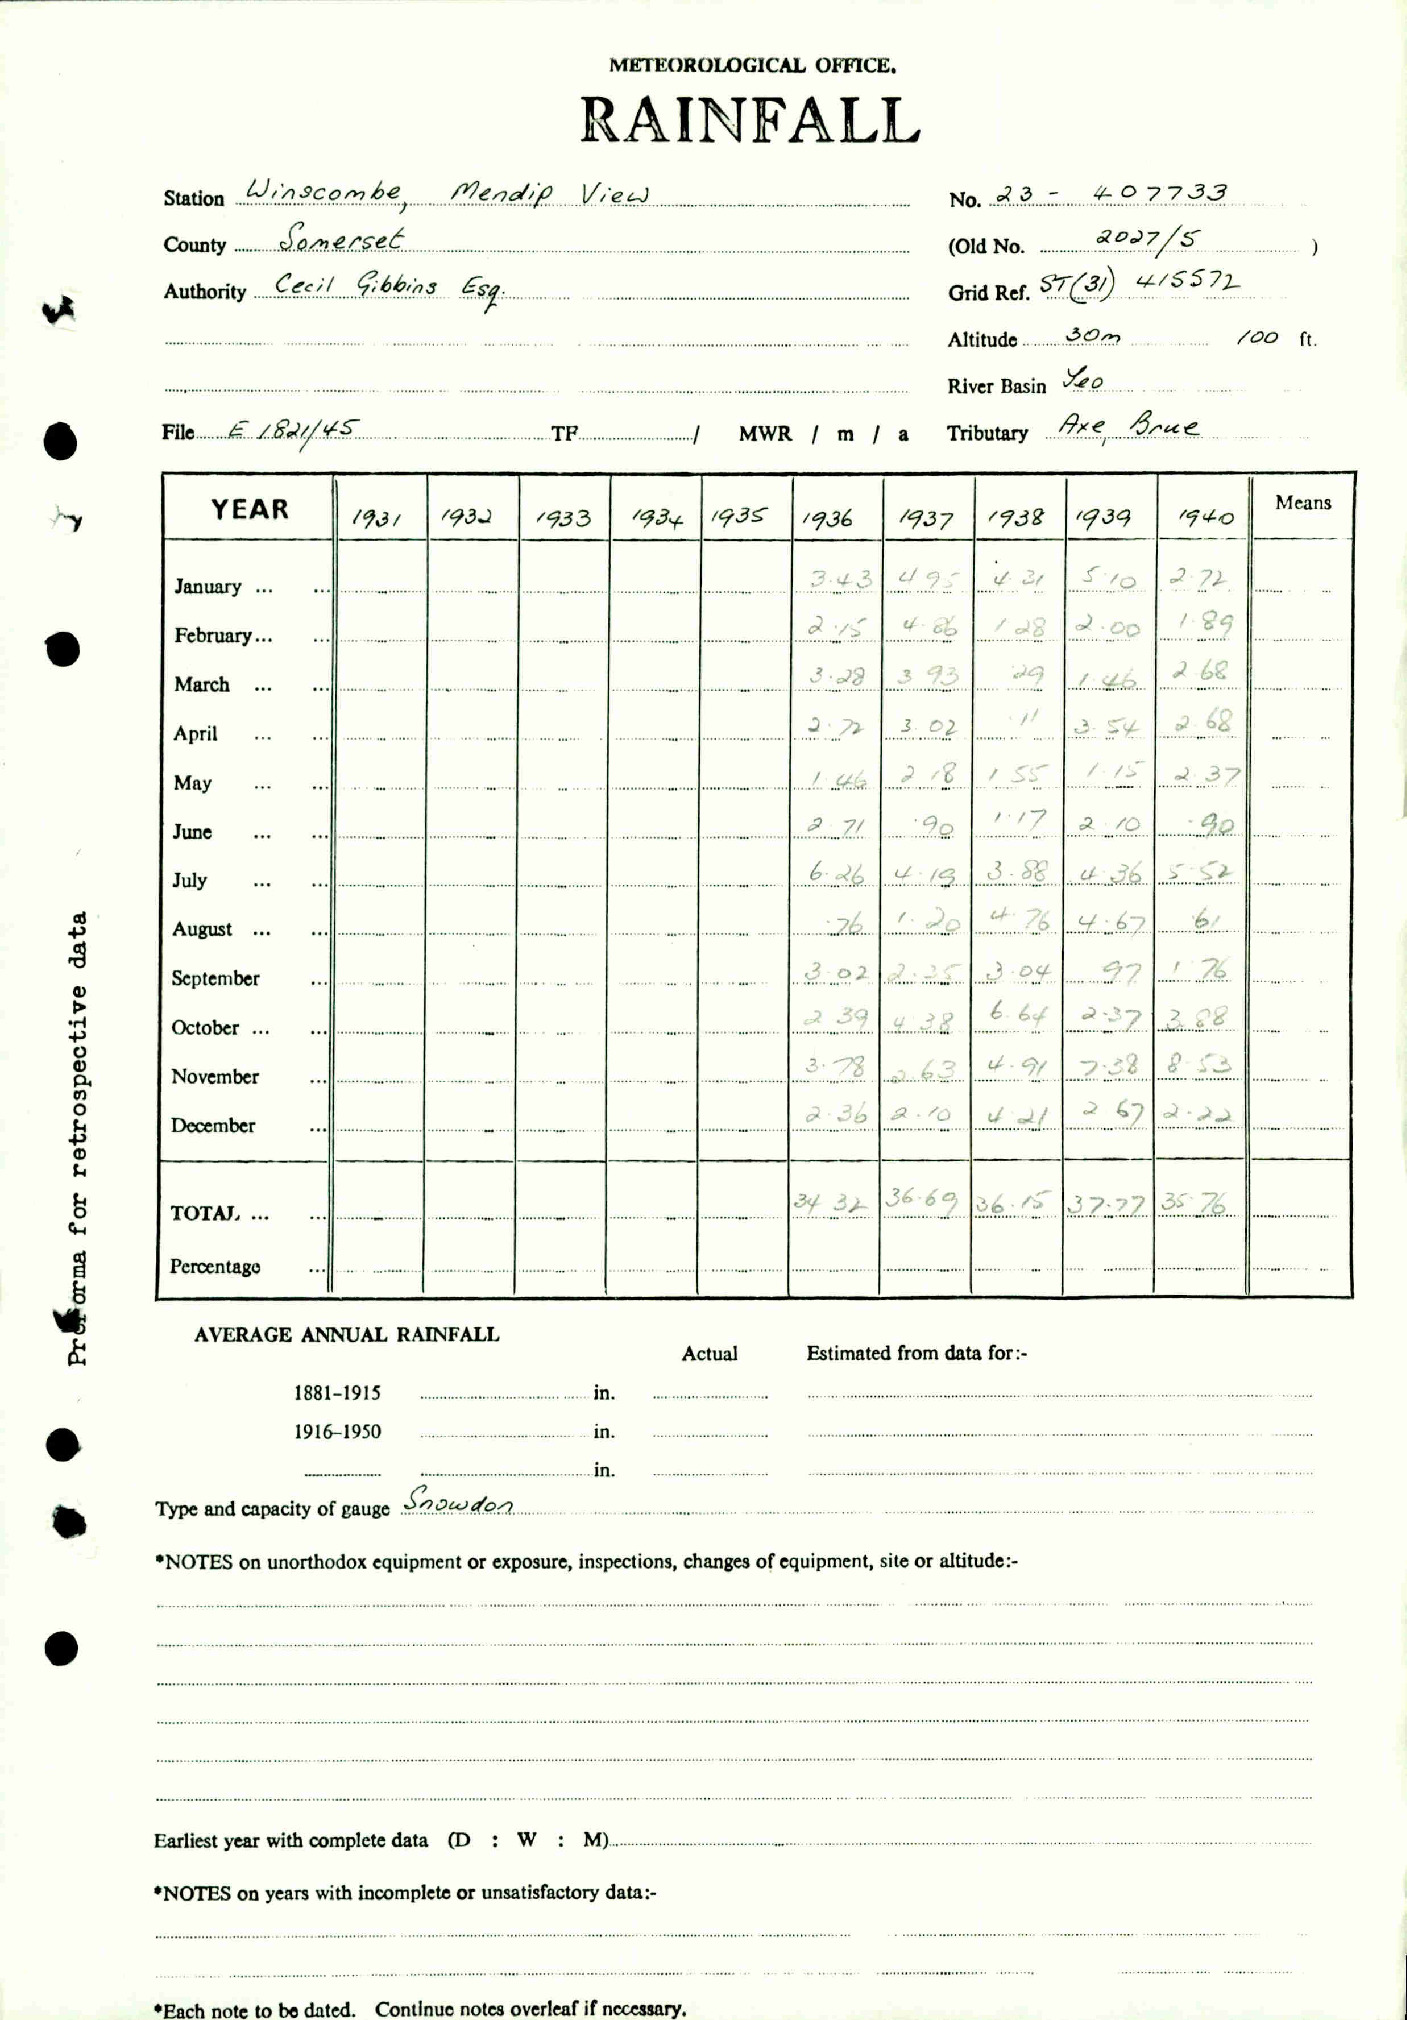 METEOROLOGICAL OFFICE.
RAINFALL
Station Winscombe, Mendip View No. 23 - 407733
County Somerset (Old No. 2027/5 )
Authority Cecil Gibbins Esq. Grid Ref. ST(31) 415572
Altitude 30m 100 ft.
River Basin Yeo
File E 1821/45 TF / MWR / m / a Tributary Axe, Brue
YEAR 1931 1932 1933 1934 1935 1936 1937 1938 1939 1940 Means
January ... ... 3.43 4.95 4.31 5.10 2.72
February ... ... 2.15 4.86 1.28 2.00 1.89
March ... ... 3.28 3.93 .29 1.46 2.68
April ... ... 2.72 3.02 .11 3.54 2.68
May ... ... 1.46 2.18 1.55 1.15 2.37
June ... ... 2.71 .90 1.17 2.10 .90
July ... ... 6.26 4.19 3.88 4.36 5.52
August ... ... .76 1.20 4.76 4.67 .61
September ... 3.02 2.35 3.04 .97 1.76
October ... ... 2.39 4.38 6.64 2.37 3.88
November ... 3.78 2.63 4.91 7.38 8.53
December ... 2.36 2.10 4.21 2.67 2.22
TOTAL ... ... 34.32 36.69 36.15 37.77 35.76
Percentage ...
Proforma for retrospective data
AVERAGE ANNUAL RAINFALL
Actual Estimated from data for:-
1881-1915 in.
1916-1950 in.
in.
Type and capacity of gauge Snowdon
*NOTES on unorthodox equipment or exposure, inspections, changes of equipment, site or altitude:-
Earliest year with complete data (D : W : M)
*NOTES on years with incomplete or unsatisfactory data:-
*Each note to be dated. Continue notes overleaf if necessary.